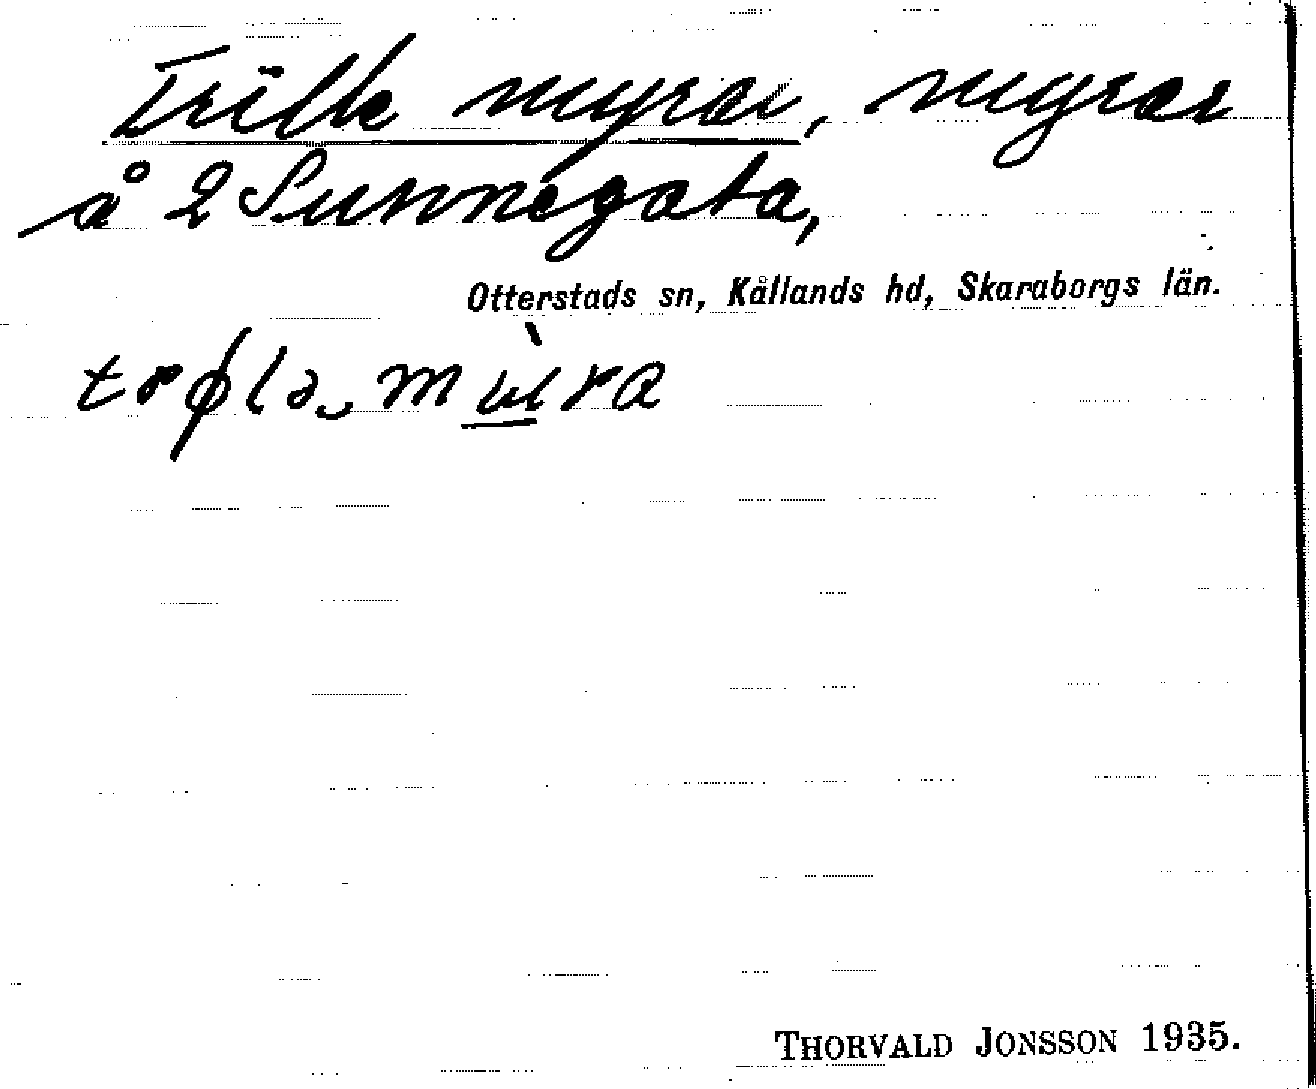 Trille myrar, myrar
å 2 Sunnegata,
Otterstads sn, Kållands hd, Skaraborgs län.
THORVALD JONSSON 1935.